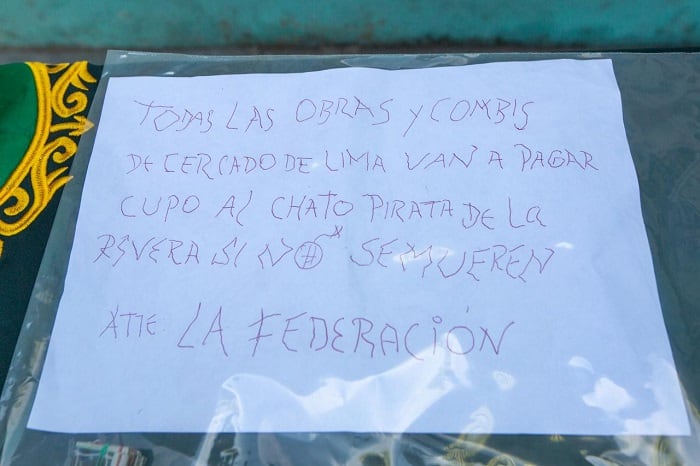 TODAS LAS OBRAS Y COMBIS
DE CERCADO DE LIMA VAN A PAGAR
CUPO AL CHATO PIRATA DE LA
RIVERA SI NO SE MUEREN
ATTE: LA FEDERACIÓN